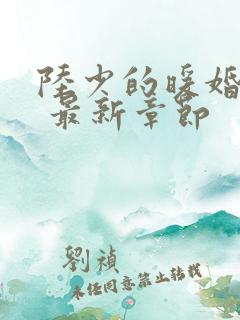 陆少的暖婚
最新章节
劉禎
未经同意禁止转载